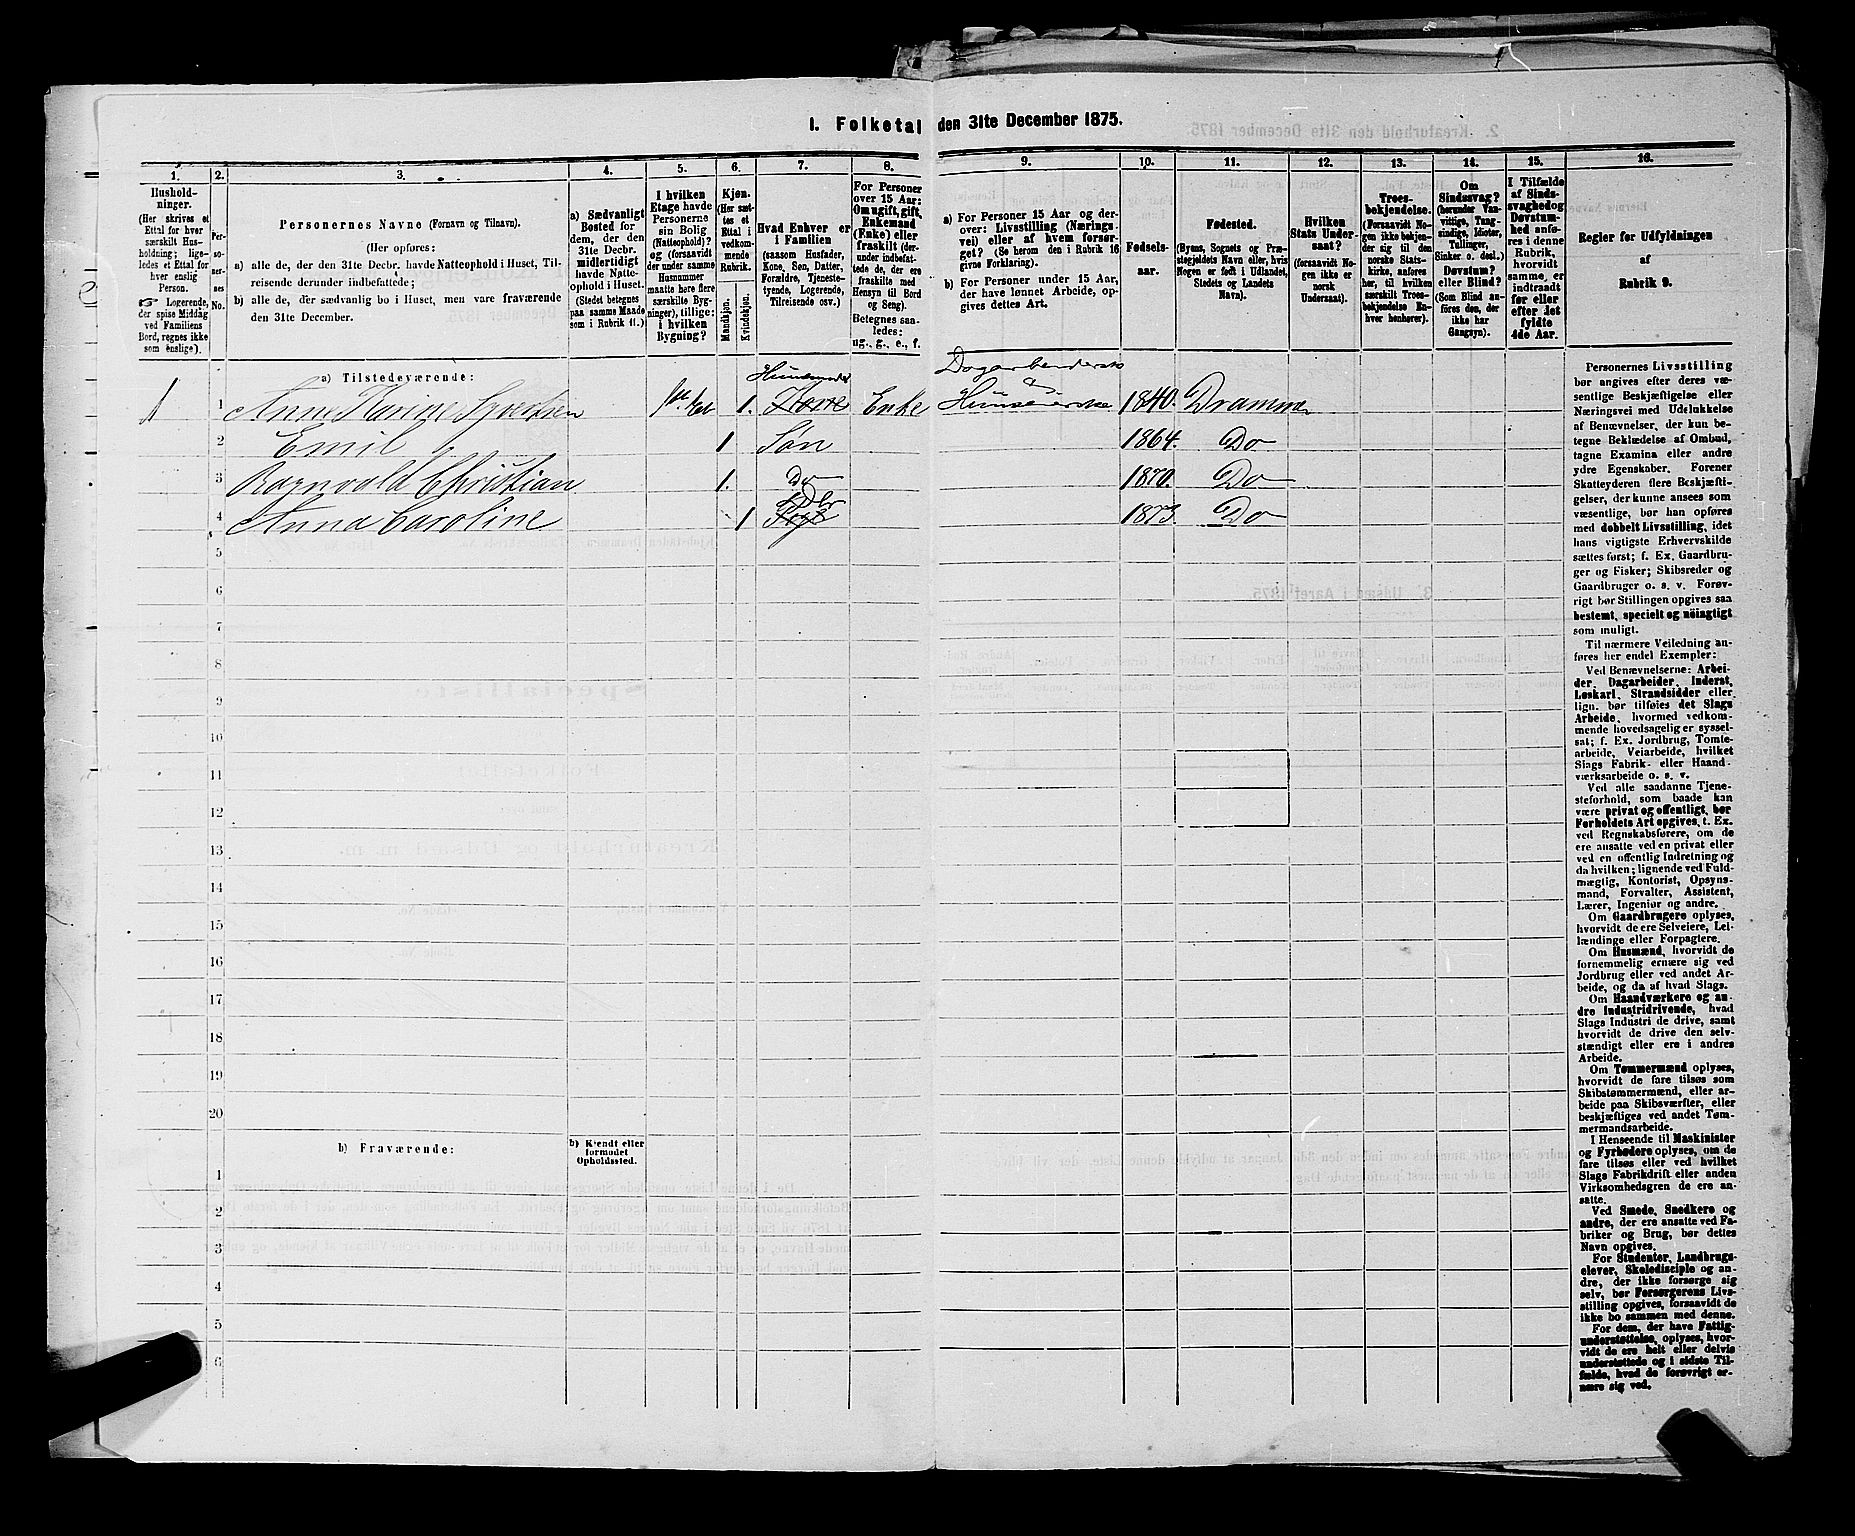 I. Folketal den 31te December 1875.
1. 2. 3. 4. 5. 6. 7. 8. 9. 10. 11. 12. 13. 14. 15. 16.
Hushold-
ninger.
(Her skrives et
Ettal for hver
særskilt Hus-
holdning; lige-
ledes et Ettal for
hver enslig
Person.
☞ Logerende,
der spise Middag
ved Familiens
Bord, regnes ikke
som enslige).
Per-
so-
ner-
nes
No.
Personernes Navne (Fornavn og Tilnavn).
(Her opføres:
a) alle de, der den 31te Decbr. havde Natteophold i Huset, Til-
reisende derunder indbefattede;
b) alle de, der sædvanlig bo i Huset, men vare fraværende
den 31te December.
a) Sædvanligt
Bosted for
dem, der den
31te Decbr.
midlertidigt
havde Natte-
ophold i Huset.
(Stedet betegnes
paa samme Maade
som i Rubrik 11.)
I hvilken
Etage havde
Personerne
sin Bolig
(Natteophold)?
og (forsaavidt
der under samme
Husnummer
maatte høre flere
særskilte Byg-
ninger), tillige:
i hvilken
Bygning?
Kjøn.
(Her sæt-
tes et
Ettal i
vedkom-
mende
Rubrik.
Mandkjøn.
Kvindekjøn.
Hvad Enhver er
i Familien
(saasom Husfader,
Kone, Søn, Datter,
Forældre, Tjeneste-
tyende, Logerende,
Tilreisende osv.)
For Personer
over 15 Aar:
Om ugift, gift,
Enkemand
(Enke) eller
fraskilt (der-
under indbefat-
tede de, der ere
fraskilte med
Hensyn til Bord
og Seng).
Betegnes saa-
ledes:
ug., g., e., f.
a) For Personer 15 Aar og der-
over: Livsstilling (Nærings-
vei) eller af hvem forsør-
get? (Se herom den i Rubrik 16
givne Forklaring).
b) For Personer under 15 Aar,
der have lønnet Arbeide, op-
gives dettes Art.
Fødsels-
aar.
Fødested.
(Byens, Sognets og Præ-
stegjeldets Navn eller, hvis
Nogen er født i Udlandet,
Stedets og Landets
Navn).
Hvilken
Stats Under-
saat?
(forsaavidt No-
gen ikke er
norsk
Undersaat).
Troes-
bekjendelse.
(Forsaavidt No-
gen ikke bekjen-
der sig til den
norske Stats-
kirke, anføres
her, til hvilken
særskilt Troes-
bekjendelse En-
hver henhører).
Om
Sindssvag?
(herunder Van-
vittige, Tung-
sindige, Idioter,
Tullinger,
Sinker o. desl.)
Døvstum?
eller Blind?
(Som Blind an-
føres den, der
ikke har
Gangsyn).
I Tilfælde
af Sinds-
svaghed og
Døvstum-
hed anfø-
res i denne
Rubrik,
hvorvidt
samme er
indtraadt
før eller
efter det
fyldte
4de Aar.
Regler for Udfyldningen
af
Rubrik 9.
a) Tilstedeværende:
Dagarbeiderske
1 1 Anne Karine Syvertsen 1ste Et. 1. Enke 1840. Drammen
2 Emil 1 Søn 1864. Do
3 Ragnvald Christian 1. Do 1870. Do
4 Anna Caroline 1 Dtr 1873. Do
5
6
7
8
9
10
11
12
13
14
15
16
17
18
19
20
b) Fraværende:
b) Kjendt eller
formodet
Opholdssted.
1
2
3
4
5
6
Personernes Livsstilling
bør angives efter deres væ-
sentlige Beskjæftigelse eller
Næringsvei med Udelukkelse
af Benævnelser, der kun be-
tegne Beklædelse af Ombud,
tagne Examina eller andre
ydre Egenskaber. Forener
Skatteyderen flere Beskjæfti-
gelser, der kunne ansees som
væsentlige, bør han opføres
med dobbelt Livsstilling, idet
hans vigtigste Erhvervskilde
sættes først; f. Ex. Gaardbru-
ger og Fisker; Skibsreder og
Gaardbruger o. s. v. Forøv-
rigt bør Stillingen opgives saa
bestemt, specielt og nøiagtigt
som muligt.
Til nærmere Veiledning an-
føres her endel Exempler:
Ved Benævnelserne: Arbei-
der, Dagarbeider, Inderst,
Løskarl, Strandsidder eller
lign. bør tilføies det Slags
Arbeide, hvormed vedkom-
mende hovedsagelig er syssel-
sat; f. Ex. Jordbrug, Tomte-
arbeide, Veiarbeide, hvilket
Slags Fabrik- eller Haand-
værksarbeide o. s. v.
Ved alle saadanne Tjene-
steforhold, som baade kan
være privat og offentligt, bør
Forholdets Art opgives, t. Ex.
ved Regnskabsførere, om de
ere ansatte ved en privat eller
ved en offentlig Indretning og
da hvilken; lignende ved Fuld-
mægtig, Kontorist, Opsyns-
mand, Forvalter, Assistent,
Lærer, Ingeniør og andre.
Om Gaardbrugere oplyses,
hvorvidt de ere Selveiere, Lei-
lændinge eller Forpagtere.
Om Husmænd, hvorvidt de
fornemmelig ernære sig ved
Jordbrug eller ved andet Ar-
beide, og da af hvad Slags.
Om Haandværkere og an-
dre Industridrivende, hvad
Slags Industri de drive, samt
hvorvidt de drive den selv-
stændigt eller ere i andres
Arbeide.
Om Tømmermænd oplyses,
hvorvidt de fare tilsøs som
Skibstømmermænd, eller ar-
beide paa Skibsværfter, eller
beskjæftiges ved andet Tøm-
mermandsarbeide.
I Henseende til Maskinister
og Fyrbødere oplyses, om de
fare tilsøs eller ved hvilket
Slags Fabrikdrift eller anden
Virksomhedsgren de ere an-
satte.
Ved Smede, Snedkere og
andre, der ere ansatte ved Fa-
briker og Brug, bør dettes
Navn opgives.
For Studenter, Landbrugs-
elever, Skoledisciple og an-
dre, der ikke forsørge sig
selv, bør Forsørgerens Livs-
stilling opgives, forsaavidt de
ikke bo sammen med denne.
For dem, der have Fattig-
understøttelse, oplyses, hvor-
vidt de ere helt eller delvis
understøttede og i sidste Til-
fælde, hvad de forøvrigt er-
nære sig ved.